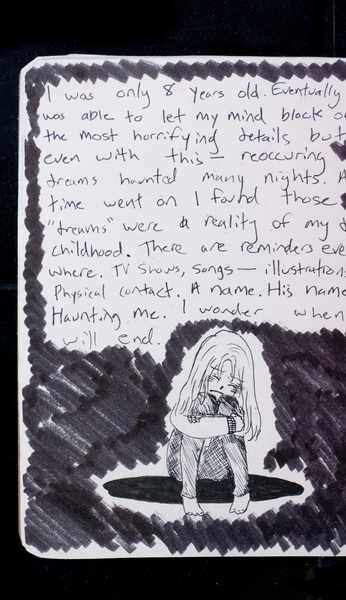 I was only 8 years old. Eventually
was able to let my mind block
the most horrifying details but
even with this — reoccuring
dreams haunted many nights.
time went on I found those
"dreams" were a reality of my
childhood. There are reminders
where. TV shows, songs — illustrations
Physical contact. A name. His name
Haunting me. I wonder when
will end.